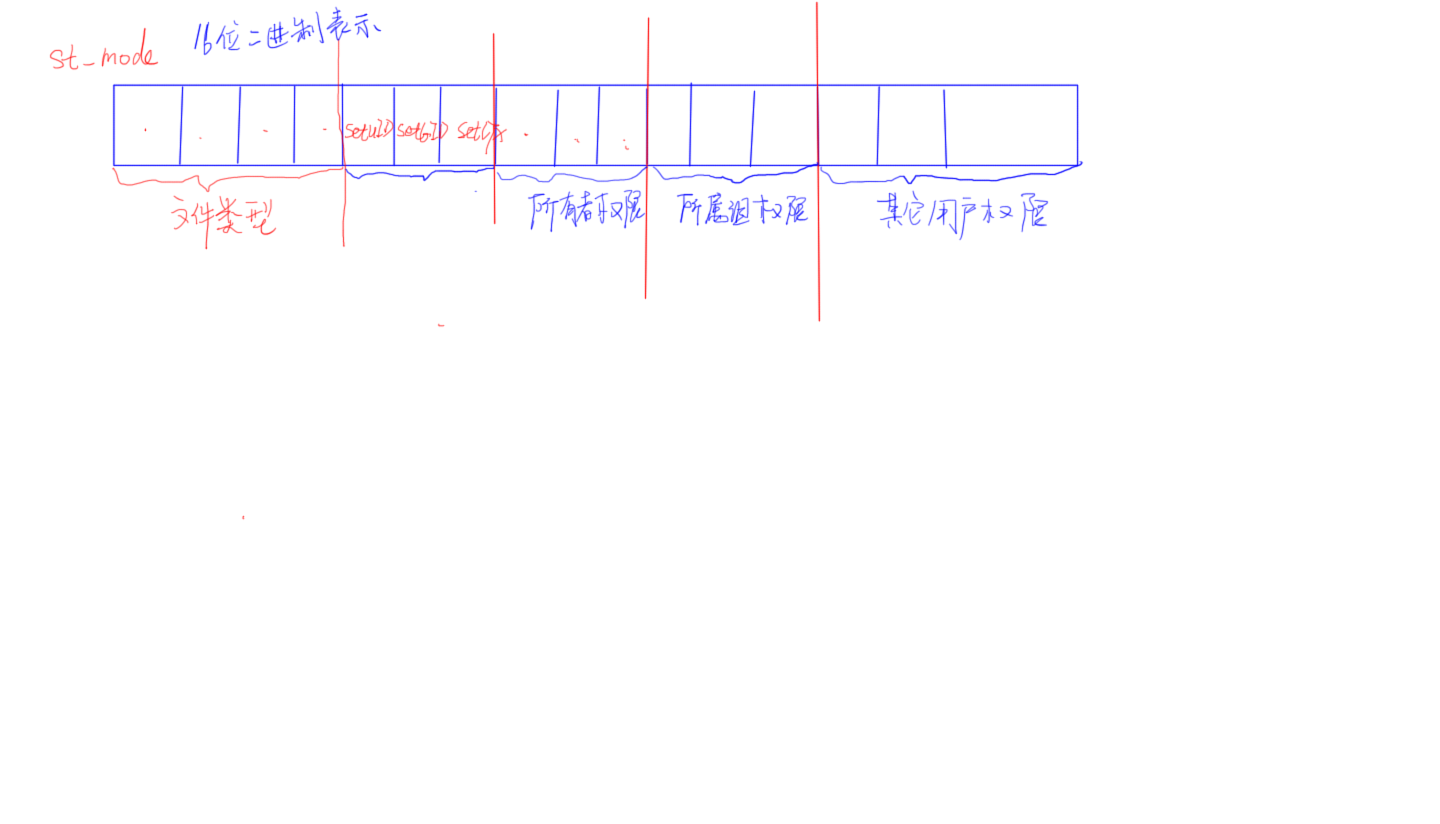 st_mode 16位二进制表示
setUID setGID
文件类型 所有者权限 所属组权限 其它用户权限